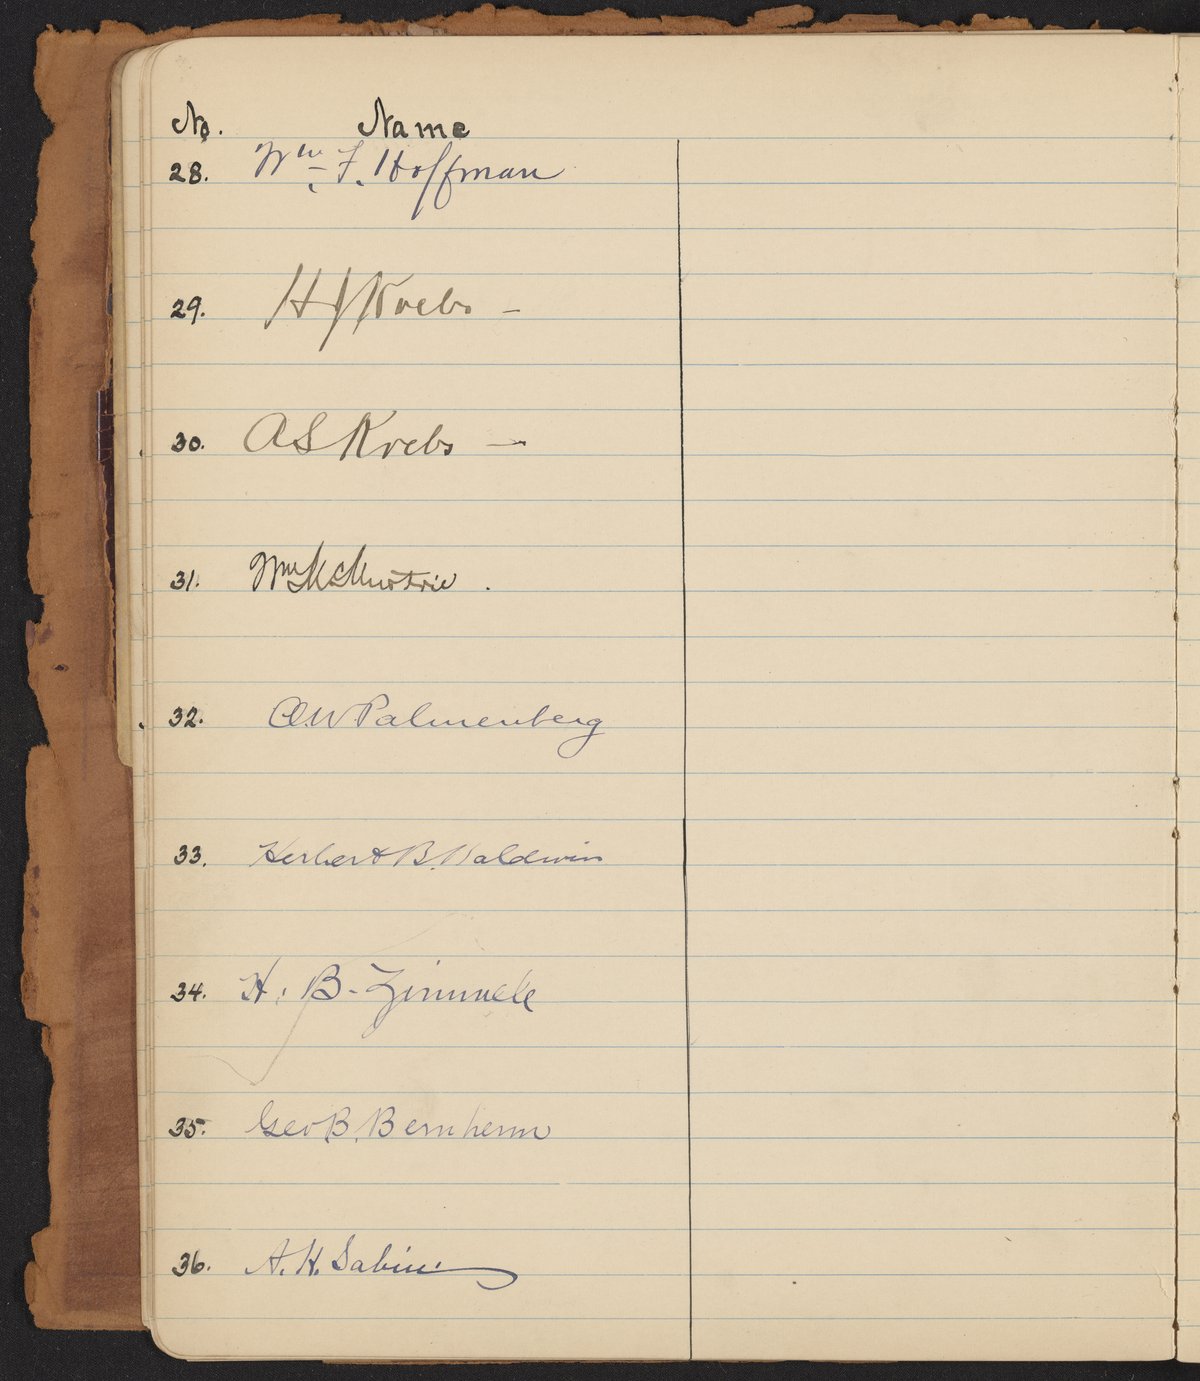 No. Name
28. Wm. F. Hoffman
29. H J Krebs -
30. A S Krebs -
31. Wm McMurtrie.
32. O W Palmenberg
33. Herbert B. Baldwin
34. H. B. Zimmele
35. Geo B. Bernheim
36. A. H. Sabin